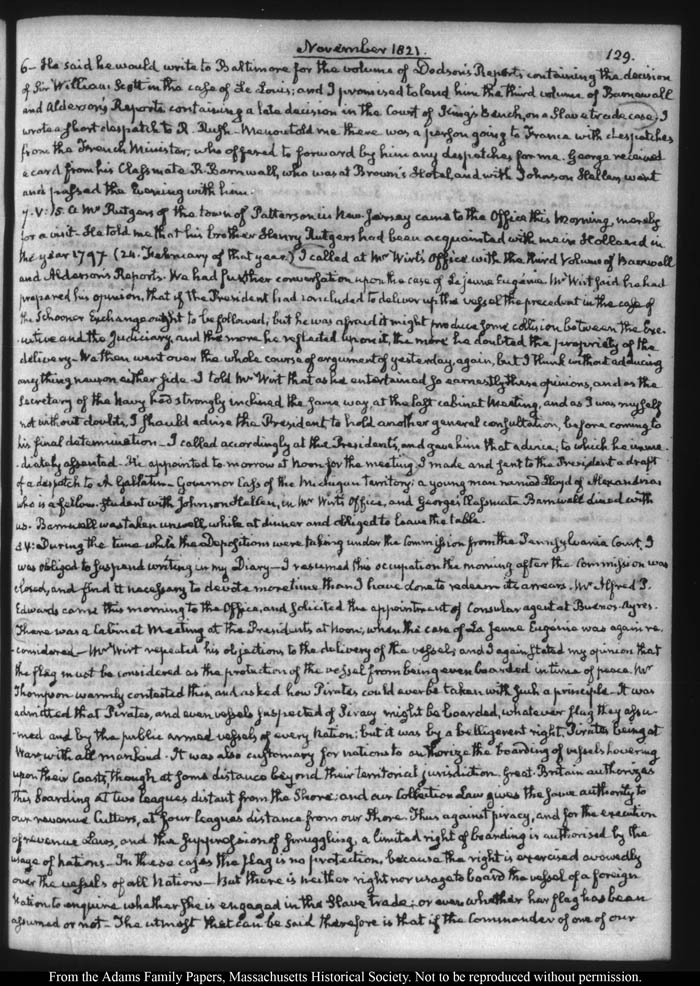 November 1821.
129.
6— He said he would write to Baltimore for the volume of Dodson's Reports containing the decision
of Sir William Scott in the case of Le Louis; and I promised to lend him the third volume of Barnewall
and Alderson's Reports containing a late decision in the Court of King's Bench, on a Slave trade case. I
wrote a short despatch to R. Rush— told me there was a person going to France with despatches
from the French Minister, who offered to forward by him any despatches for me. George received
a card from his Classmate R. Barnwall, who was at Brown's Hotel, and with Johnson Hellen, went
and passed the Evening with him.
7. V:15. A Mr Rutgers of the town of Patterson in New-Jersey came to the Office this Morning, merely
for a visit. He told me that his brother Henry Rutgers had been acquainted with me in Holland in
the year 1797 (24. February of that year.) I called at Mr Wirt's Office with the third Volume of Barnwall
and Alderson's Reports. We had further conversation upon the case of La jeune Eugénie. Mr Wirt said he had
prepared his opinion, that if the President had concluded to deliver up the vessel the precedent in the case of
the Schooner Exchange ought to be followed; but he was afraid it might produce some collision between the Exe-
cutive and the Judiciary, and the more he reflected upon it, the more he doubted the propriety of the
delivery— We then went over the whole course of argument of yesterday, again, but I think without adducing
any thing new on either side. I told Mr Wirt that as he entertained so earnestly these opinions, and as the
Secretary of the Navy had strongly inclined the same way at the last cabinet Meeting, and as I was myself
not without doubts, I should advise the President to hold another general consultation, before coming to
his final determination— I called accordingly at the President's, and gave him that advice; to which he imme-
diately assented— He appointed to-morrow at Noon for the meeting. I made and sent to the President a draft
of a despatch to A Gallatin— Governor Cass of the Michigan Territory; a young man named Lloyd of Alexandria
who is a fellow-student with Johnson Hellen, in Mr Wirt's Office, and George's Classmate Barnwell dined with
us. Barnwell was taken unwell, while at dinner and obliged to leave the table.
During the time while the Depositions were taking under the Commission from the Pennsylvania Court, I
was obliged to suspend writing in my Diary— I resumed this occupation the morning after the Commission was
closed, and find it necessary to devote more time than I have done to redeem its arrears. Mr Alfred P.
Edwards came this morning to the Office, and solicited the appointment of Consular agent at Buenos-Ayres.
There was a Cabinet Meeting at the Presidents at Noon, when the case of La Jeune Eugénie was again re-
considered— Mr Wirt repeated his objections to the delivery of the vessel, and I again stated my opinion that
the flag must be considered as the protection of the vessel from being even boarded in time of peace. Mr
Thompson warmly contested this, and asked how Pirates could ever be taken with such a principle— It was
admitted that Pirates, and even vessels suspected of Piracy might be boarded, whatever flag they assu-
-med and by the public armed vessels of every Nation; but it was by a belligerent right, Pirates being at
War with all mankind. It was also customary for nations to authorize the boarding of vessels hovering
upon their Coasts, though at some distance beyond their territorial jurisdiction. Great-Britain authorizes
this boarding at two leagues distant from the Shore; and our Collection Law gives the same authority to
our revenue Cutters, at four leagues distance from our Shore. Thus against piracy, and for the execution
of revenue Laws, and the suppression of smuggling, a limited right of boarding is authorised by the
usage of nations— In these cases the flag is no protection, because the right is exercised avowedly
over the vessels of all Nations— But there is neither right nor usage to board the vessel of a foreign
Nation to enquire whether she is engaged in the Slave trade; or even whether her flag has been
assumed or not— The utmost that can be said therefore is that if the Commander of one of our
From the Adams Family Papers, Massachusetts Historical Society. Not to be reproduced without permission.